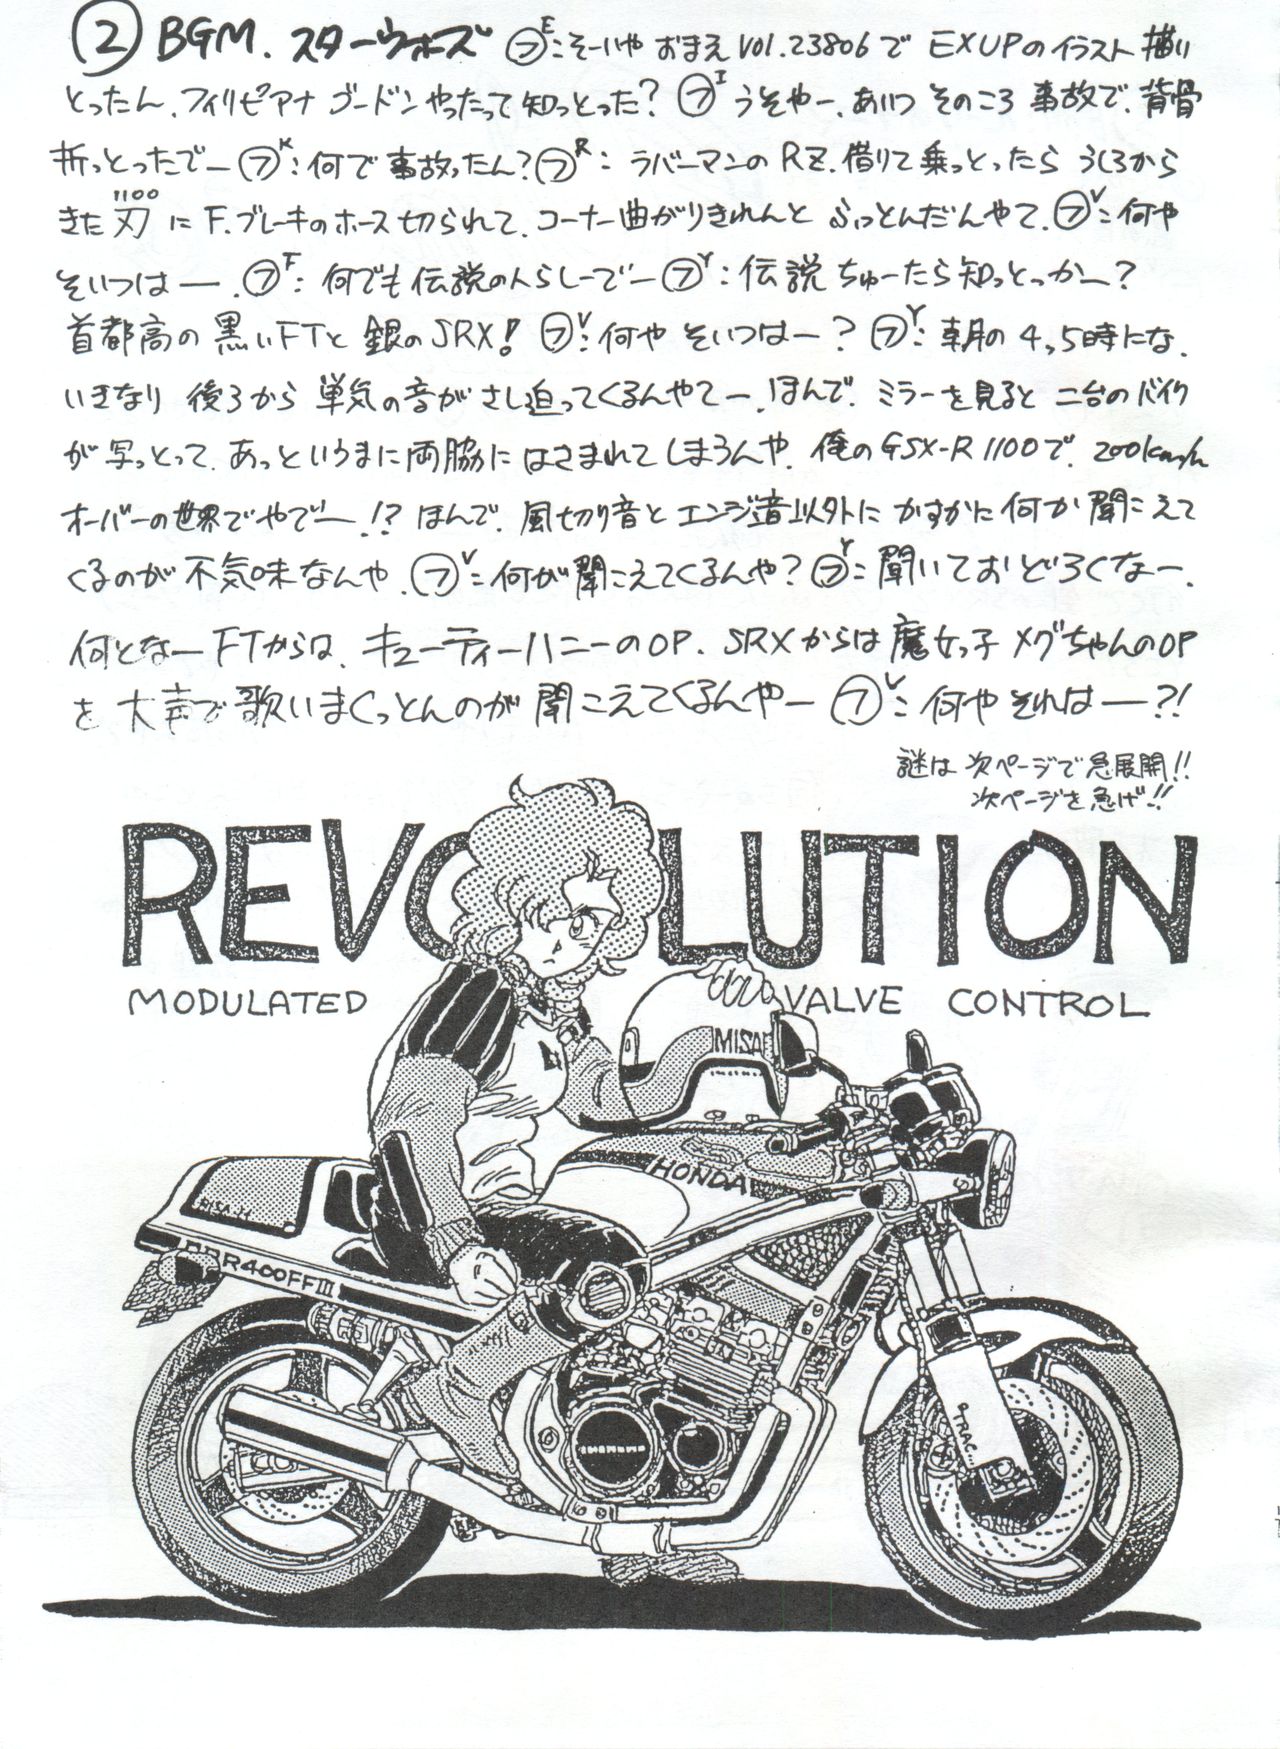 ② BGM. スターウォーズ ㋫E:そーいや おまえ Vol.23806で EXUPのイラスト描い
とったん、フィリピアナ ゴードンやったって知っとった? ㋫I うそやー、あいつ そのころ 事故で、背骨
折っとったでー ㋫K:何で事故ったん? ㋫R:ラバーマンのRZ.借りて乗っとったら うしろから
きた刃1100に F.ブレーキのホース切られて、コーナー曲がりきれんと ふっとんだんやて、㋫V:何や
そいつはー.㋫F:何でも伝説の人らしーでー ㋫Y:伝説 ちゅーたら知っとっかー?
首都高の 黒いFTと 銀のSRX! ㋫V:何や そいつはー? ㋫Y:朝の4、5時にな、
いきなり 後ろから 単気の音が さし迫ってくるんやてー、ほんで、ミラーを見ると 二台のバイク
が写っとって、あっというまに両脇に はさまれて しまうんや、俺のGSX-R 1100で、200km/h
オーバーの世界でやでー!? ほんで、風切り音と エンジン音以外に かすかに何か 聞こえて
くるのが 不気味なんや、㋫V:何が聞こえてくるんや? ㋫Y:聞いて おどろくなー、
何となー FTからは、キューティーハニーのOP、SRXからは 魔女っ子 メグちゃんのOP
を 大声で歌いまくっとんのが 聞こえてくるんやー ㋫V:何や それはー?!
謎は 次ページで急展開!!
次ページを急げ!!
REVOLUTION
MODULATED VALVE CONTROL
MISA
HONDA
R400FFIII
TRAC